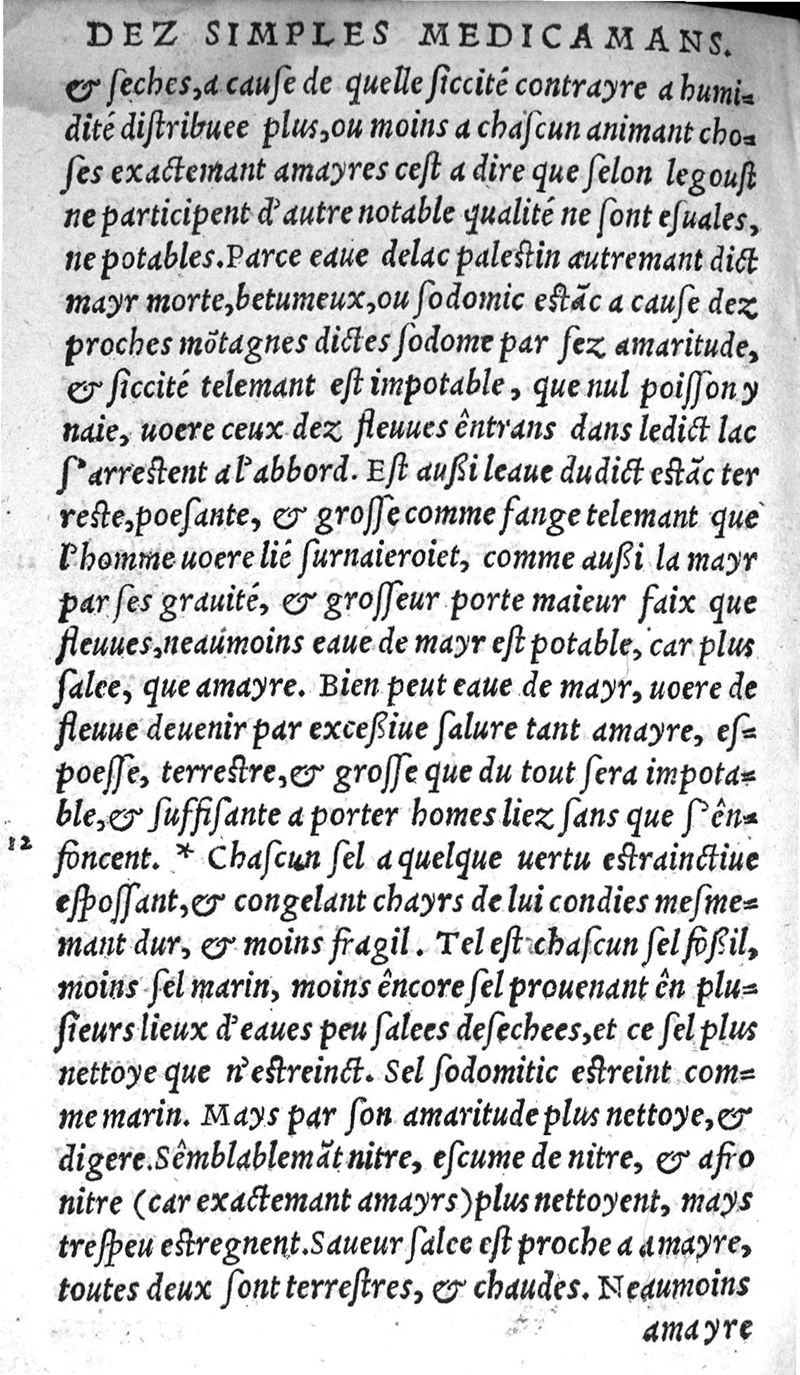 DEZ SIMPLES MEDICAMANS.
& ſeches,a cauſe de quelle ſiccité contrayre a humi-
dité diſtribuee plus,ou moins a chaſcun animant cho-
ſes exactemant amayres ceſt a dire que ſelon legouſt
ne participent d'autre notable qualité ne ſont eſuales,
ne potables.Parce eaue delac paleſtin autremant dict
mayr morte,betumeux,ou ſodomic eſtãc a cauſe dez
proches mõtagnes dictes ſodome par ſez amaritude,
& ſiccité telemant eſt impotable, que nul poiſſon y
naie, uoere ceux dez fleuues êntrans dans ledict lac
ſ'arreſtent a l'abbord. Eſt auſsi leaue dudict eſtãc ter
reſte,poeſante, & groſſe comme fange telemant que
l'homme uoere lié ſurnaieroiet, comme auſsi la mayr
par ſes grauité, & groſſeur porte maieur faix que
fleuues,neaúmoins eaue de mayr eſt potable, car plus
ſalee, que amayre. Bien peut eaue de mayr, uoere de
fleuue deuenir par exceſsiue ſalure tant amayre, eſ-
poeſſe, terreſtre,& groſſe que du tout ſera impota-
ble,& ſuffiſante a porter homes liez ſans que ſ'ên-
12 foncent. * Chaſcun ſel a quelque uertu eſtrainctiue
eſpoſſant,& congelant chayrs de lui condies meſme-
mant dur, & moins fragil. Tel eſt chaſcun ſel foſsil,
moins ſel marin, moins êncore ſel prouenant ên plu-
ſieurs lieux d'eaues peu ſalees deſechees,et ce ſel plus
nettoye que n'eſtreinct. Sel ſodomitic eſtreint com-
me marin. Mays par ſon amaritude plus nettoye,&
digere.Sêmblablemãt nitre, eſcume de nitre, & afro
nitre (car exactemant amayrs) plus nettoyent, mays
treſpeu eſtregnent.Saueur ſalee eſt proche a amayre,
toutes deux ſont terreſtres, & chaudes. Neaumoins
amayre